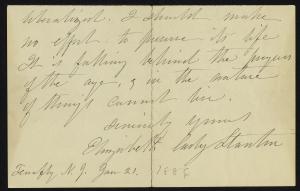 liberalized. I should make
no effort to preserve its life
It is falling behind the progress
of the age, & in the nature
of things cannot live.
Sincerely yours
Elizabeth Cady Stanton
Tenafly N. J. Jan 21. 1888